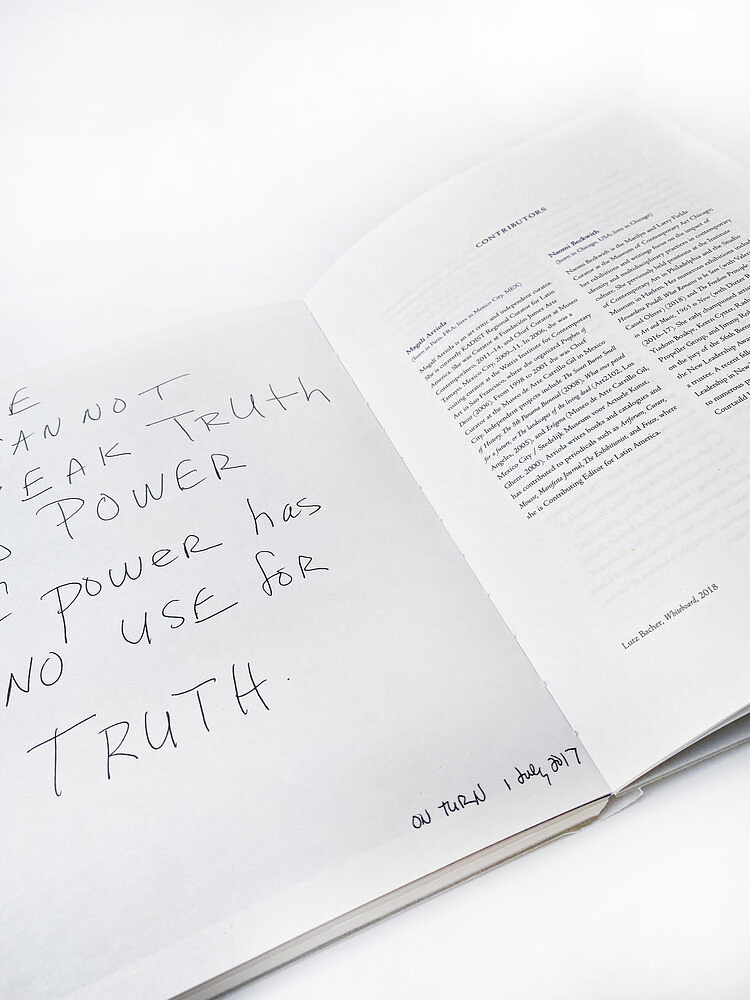 E
ANNOT
PEAK TRUTH
O POWER
POWER has
NO USE for
TRUTH.
ON TURN 1 July, 2017
CONTRIBUTORS
Magali Arriola
(born in Paris, FRA; lives in Mexico City, MEX)
Magali Arriola is an art critic and independent curator.
She is currently KADIST Regional Curator for Latin
America. She was Curator at Fundación Jumex Arte
Contemporáneo, 2011–14, and Chief Curator at Museo
Tamayo, Mexico City, 2009–11. In 2006, she was a
visiting curator at the Wattis Institute for Contemporary
Art in San Francisco, where she organized Prophets of
Deceit (2006). From 1998 to 2001 she was Chief
Curator at the Museo de Arte Carrillo Gil in Mexico
City. Independent projects include The Sweet Burnt Smell
of History: The 8th Panama Biennial (2008), What once passed
for a future, or The landscapes of the living dead (Art2102, Los
Angeles, 2005), and Erógena (Museo de Arte Carrillo Gil,
Mexico City / Stedelijk Museum voor Actuele Kunst,
Ghent, 2000). Arriola writes books and catalogues and
has contributed to periodicals such as Artforum, Curare,
Mousse, Manifesta Journal, The Exhibitionist, and Frieze, where
she is Contributing Editor for Latin America.
Naomi Beckwith
(born in Chicago, USA; lives in Chicago)
Naomi Beckwith is the Marilyn and Larry Fields
Curator at the Museum of Contemporary Art Chicago.
her exhibitions and writings focus on the impact of
identity and multidisciplinary practices in contemporary
culture. She previously held positions at the Institute
of Contemporary Art in Philadelphia and the Studio
Museum in Harlem. Her numerous exhibitions
Howardena Pindell: What Remains to Be Seen (with
Cassel Oliver) (2018) and The Freedom Principle
in Art and Music, 1965 to Now (with Dieter
(2014–17). She early championed
Yiadom Boakye, Karen Cytter, Rashid
Propeller Group, and Jimmy
on the jury of the 56th
the New Leadership
a trustee. A recent
Leadership in New
to numerous
Courtauld
Lutz Bacher, Whiteboard, 2018